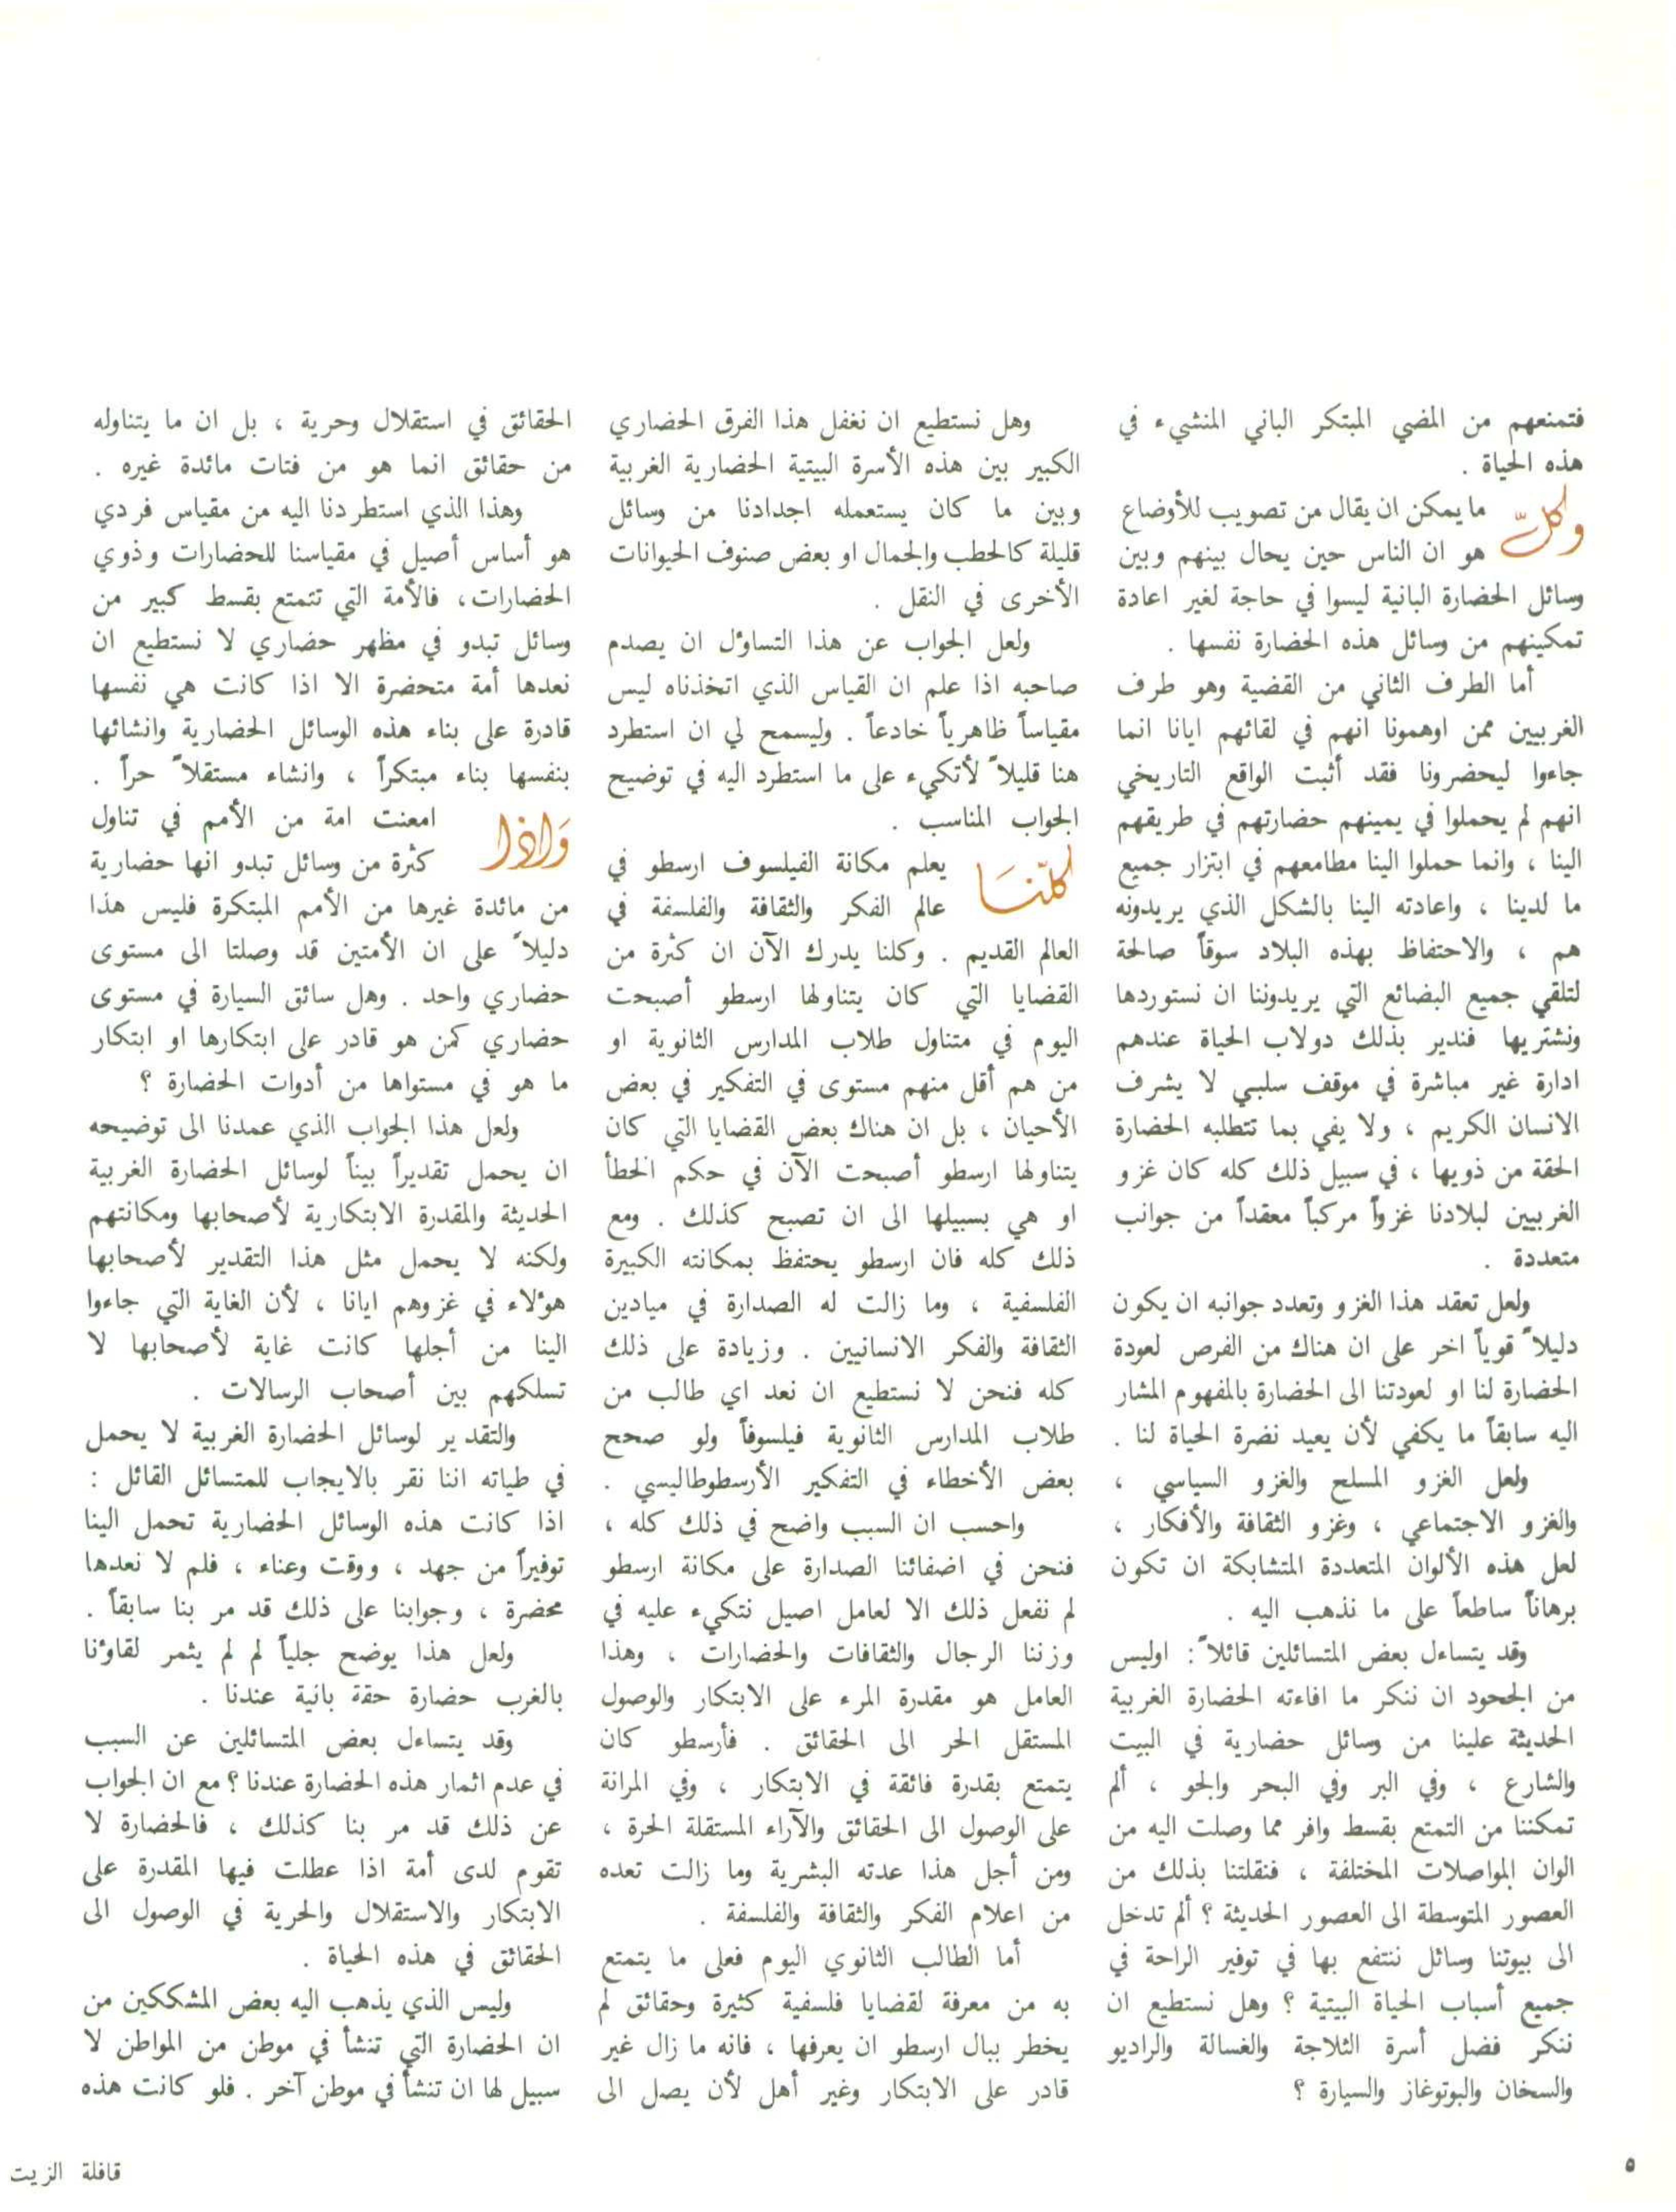 فتمنعهم من المضي المبتكر الباني المنشيء في
هذه الحياة .
وكلّ ما يمكن ان يقال من تصويب للأوضاع
هو ان الناس حين يحال بينهم وبين
وسائل الحضارة البانية ليسوا في حاجة لغير اعادة
تمكينهم من وسائل هذه الحضارة نفسها .
أما الطرف الثاني من القضية وهو طرف
الغربيين ممن اوهمونا انهم في لقائهم ايانا انما
جاءوا ليحضرونا فقد أثبت الواقع التاريخي
انهم لم يحملوا في يمينهم حضارتهم في طريقهم
الينا ، وانما حملوا الينا مطامعهم في ابتزار جميع
ما لدينا ، واعادته الينا بالشكل الذي يريدونه
هم ، والاحتفاظ بهذه البلاد سوقاً صالحة
لتلقي جميع البضائع التي يريدوننا ان نستوردها
ونشتريها فندير بذلك دولاب الحياة عندهم
ادارة غير مباشرة في موقف سلبي لا يشرف
الانسان الكريم ، ولا يفي بما تتطلبه الحضارة
الحقة من ذويها ، في سبيل ذلك كله كان غزو
الغربيين لبلادنا غزواً مركباً معقداً من جوانب
متعددة .
ولعل تعقد هذا الغزو وتعدد جوانبه ان يكون
دليلاً قوياً اخر على ان هناك من الفرص لعودة
الحضارة لنا او لعودتنا الى الحضارة بالمفهوم المشار
اليه سابقاً ما يكفي لأن يعيد نضرة الحياة لنا .
ولعل الغزو المسلح والغزو السياسي ،
والغزو الاجتماعي ، وغزو الثقافة والأفكار ،
لعل هذه الألوان المتعددة المتشابكة ان تكون
برهاناً ساطعاً على ما نذهب اليه .
وقد يتساءل بعض المتسائلين قائلاً : اوليس
من الجحود ان ننكر ما افاءته الحضارة الغربية
الحديثة علينا من وسائل حضارية في البيت
والشارع ، وفي البر وفي البحر والجو ، ألم
تمكننا من التمتع بقسط وافر مما وصلت اليه من
الوان المواصلات المختلفة ، فنقلتنا بذلك من
العصور المتوسطة الى العصور الحديثة ؟ ألم تدخل
الى بيوتنا وسائل ننتفع بها في توفير الراحة في
جميع أسباب الحياة البيتية ؟ وهل نستطيع ان
ننكر فضل أسرة الثلاجة والغسالة والراديو
والسخان والبوتوغاز والسيارة ؟
وهل نستطيع ان نغفل هذا الفرق الحضاري
الكبير بين هذه الأسرة البيتية الحضارية الغربية
وبين ما كان يستعمله اجدادنا من وسائل
قليلة كالحطب والجمال او بعض صنوف الحيوانات
الأخرى في النقل .
ولعل الجواب عن هذا التساؤل ان يصدم
صاحبه اذا علم ان القياس الذي اتخذناه ليس
مقياساً ظاهرياً خادعاً . وليسمح لي ان استطرد
هنا قليلاً لأتكيء على ما استطرد اليه في توضيح
الجواب المناسب .
كلّنا يعلم مكانة الفيلسوف ارسطو في
عالم الفكر والثقافة والفلسفة في
العالم القديم . وكلنا يدرك الآن ان كثرة من
القضايا التي كان يتناولها ارسطو أصبحت
اليوم في متناول طلاب المدارس الثانوية او
من هم أقل منهم مستوى في التفكير في بعض
الأحيان ، بل ان هناك بعض القضايا التي كان
يتناولها ارسطو أصبحت الآن في حكم الخطأ
او هي بسبيلها الى ان تصبح كذلك . ومع
ذلك كله فان ارسطو يحتفظ بمكانته الكبيرة
الفلسفية ، وما زالت له الصدارة في ميادين
الثقافة والفكر الانسانيين . وزيادة على ذلك
كله فنحن لا نستطيع ان نعد اي طالب من
طلاب المدارس الثانوية فيلسوفاً ولو صحح
بعض الأخطاء في التفكير الأرسطوطاليسي .
واحسب ان السبب واضح في ذلك كله ،
فنحن في اضفائنا الصدارة على مكانة ارسطو
لم نفعل ذلك الا لعامل اصيل نتكيء عليه في
وزننا الرجال والثقافات والحضارات ، وهذا
العامل هو مقدرة المرء على الابتكار والوصول
المستقل الحر الى الحقائق . فأرسطو كان
يتمتع بقدرة فائقة في الابتكار ، وفي المرانة
على الوصول الى الحقائق والآراء المستقلة الحرة ،
ومن أجل هذا عدته البشرية وما زالت تعده
من اعلام الفكر والثقافة والفلسفة .
أما الطالب الثانوي اليوم فعلى ما يتمتع
به من معرفة لقضايا فلسفية كثيرة وحقائق لم
يخطر ببال ارسطو ان يعرفها ، فانه ما زال غير
قادر على الابتكار وغير أهل لأن يصل الى
الحقائق في استقلال وحرية ، بل ان ما يتناوله
من حقائق انما هو من فتات مائدة غيره .
وهذا الذي استطردنا اليه من مقياس فردي
هو أساس أصيل في مقياسنا للحضارات وذوي
الحضارات، فالأمة التي تتمتع بقسط كبير من
وسائل تبدو في مظهر حضاري لا نستطيع ان
نعدها أمة متحضرة الا اذا كانت هي نفسها
قادرة على بناء هذه الوسائل الحضارية وانشائها
بنفسها بناء مبتكراً ، وانشاء مستقلاً حراً .
وَاذا امعنت امة من الأمم في تناول
كثرة من وسائل تبدو انها حضارية
من مائدة غيرها من الأمم المبتكرة فليس هذا
دليلاً على ان الأمتين قد وصلتا الى مستوى
حضاري واحد . وهل سائق السيارة في مستوى
حضاري كمن هو قادر على ابتكارها او ابتكار
ما هو في مستواها من أدوات الحضارة ؟
ولعل هذا الجواب الذي عمدنا الى توضيحه
ان يحمل تقديراً بيناً لوسائل الحضارة الغربية
الحديثة والمقدرة الابتكارية لأصحابها ومكانتهم
ولكنه لا يحمل مثل هذا التقدير لأصحابها
هؤلاء في غزوهم ايانا ، لأن الغاية التي جاءوا
الينا من أجلها كانت غاية لأصحابها لا
تسلكهم بين أصحاب الرسالات .
والتقدير لوسائل الحضارة الغربية لا يحمل
في طياته اننا نقر بالايجاب للمتسائل القائل :
اذا كانت هذه الوسائل الحضارية تحمل الينا
توفيراً من جهد ، ووقت وعناء ، فلم لا نعدها
محضرة ، وجوابنا على ذلك قد مر بنا سابقاً .
ولعل هذا يوضح جلياً لم لم يثمر لقاؤنا
بالغرب حضارة حقة بانية عندنا .
وقد يتساءل بعض المتسائلين عن السبب
في عدم اثمار هذه الحضارة عندنا ؟ مع ان الجواب
عن ذلك قد مر بنا كذلك ، فالحضارة لا
تقوم لدى أمة اذا عطلت فيها المقدرة على
الابتكار والاستقلال والحرية في الوصول الى
الحقائق في هذه الحياة .
وليس الذي يذهب اليه بعض المشككين من
ان الحضارة التي تنشأ في موطن من المواطن لا
سبيل لها ان تنشأ في موطن آخر . فلو كانت هذه
٥
قافلة الزيت